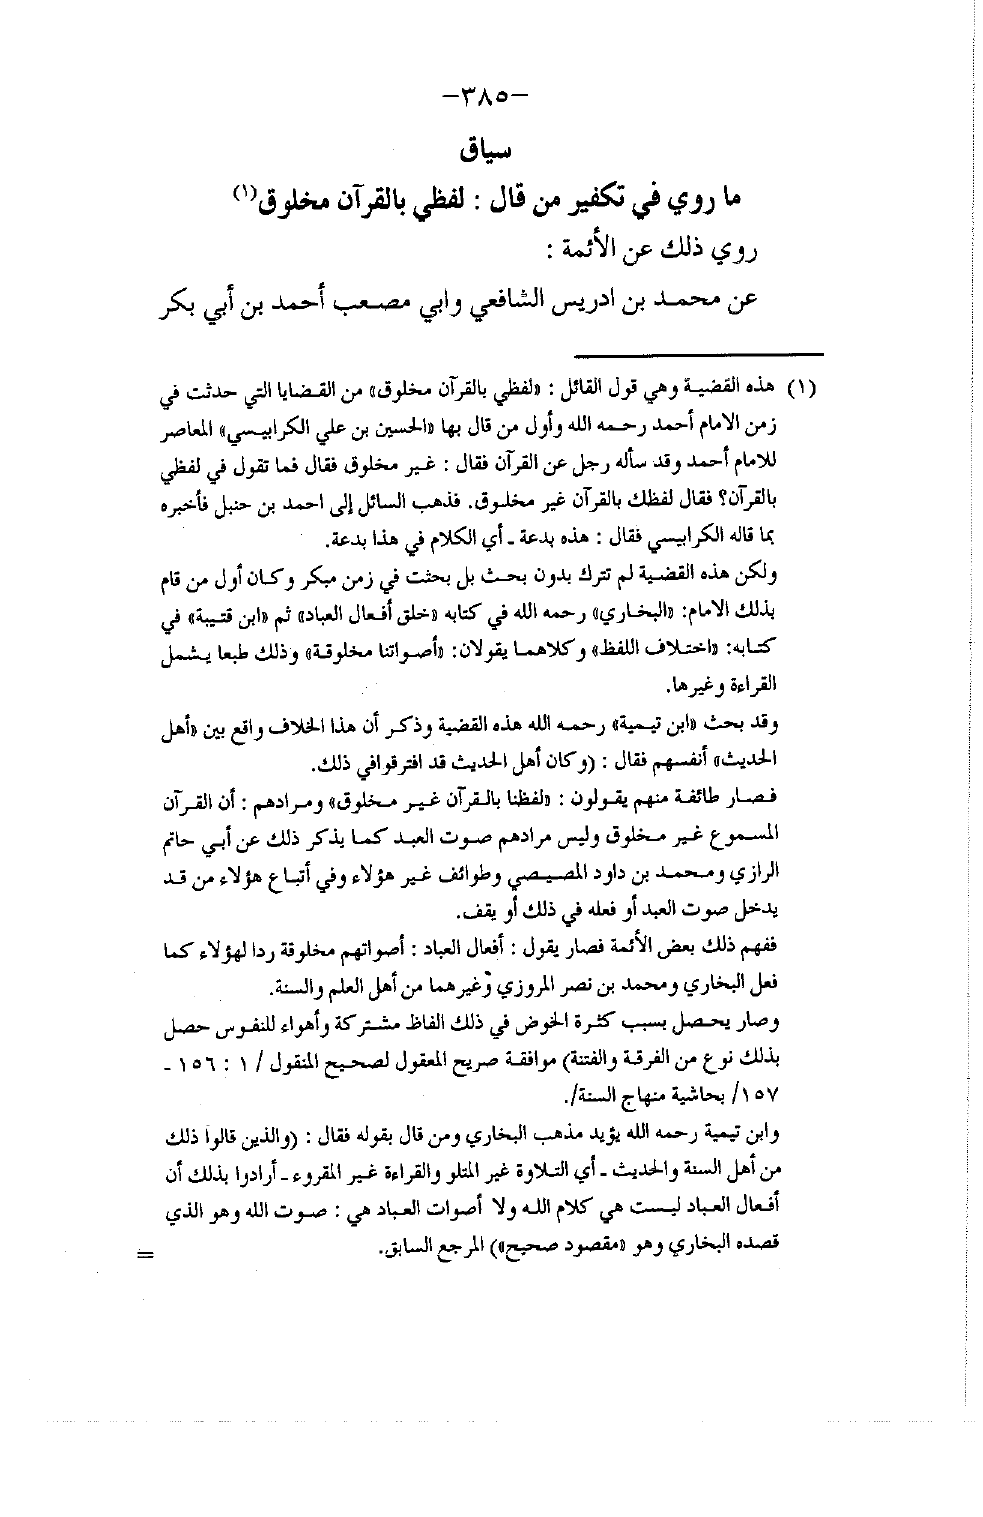 -٣٨٥-
سياق
ما روي في تكفير من قال : لفظي بالقرآن مخلوق(١)
روي ذلك عن الأئمة :
عن محمد بن ادريس الشافعي وابي مصعب أحمد بن أبي بكر
(١) هذه القضية وهي قول القائل : «لفظي بالقرآن مخلوق» من القضايا التي حدثت في
زمن الامام أحمد رحمه الله وأول من قال بها «الحسين بن علي الكرابيسي» المعاصر
للامام أحمد وقد سأله رجل عن القرآن فقال : غير مخلوق فقال فما تقول في لفظي
بالقرآن؟ فقال لفظك بالقرآن غير مخلوق. فذهب السائل إلى احمد بن حنبل فأخبره
بما قاله الكرابيسي فقال : هذه بدعة ـ أي الكلام في هذا بدعة.
ولكن هذه القضية لم تترك بدون بحث بل بحثت في زمن مبكر وكان أول من قام
بذلك الامام: «البخاري» رحمه الله في كتابه «خلق أفعال العباد» ثم «ابن قتيبة» في
كتابه: «اختلاف اللفظ» وكلاهما يقولان: «أصواتنا مخلوقة» وذلك طبعا يشمل
القراءة وغيرها.
وقد بحث «ابن تيمية» رحمه الله هذه القضية وذكر أن هذا الخلاف واقع بين «أهل
الحديث» أنفسهم فقال : (وكان أهل الحديث قد افترقوافي ذلك.
فصار طائفة منهم يقولون : «لفظنا بالقرآن غير مخلوق» ومرادهم : أن القرآن
المسموع غير مخلوق وليس مرادهم صوت العبد كما يذكر ذلك عن أبي حاتم
الرازي ومحمد بن داود المصيصي وطوائف غير هؤلاء وفي أتباع هؤلاء من قد
يدخل صوت العبد أو فعله في ذلك أو يقف.
ففهم ذلك بعض الأئمة فصار يقول : أفعال العباد : أصواتهم مخلوقة ردا لهؤلاء كما
فعل البخاري ومحمد بن نصر المروزي وغيرهما من أهل العلم والسنة.
وصار يحصل بسبب كثرة الخوض في ذلك الفاظ مشتركة وأهواء للنفوس حصل
بذلك نوع من الفرقة والفتنة) موافقة صريح المعقول لصحيح المنقول / ١ : ١٥٦ ـ
١٥٧/ بحاشية منهاج السنة/.
وابن تيمية رحمه الله يؤيد مذهب البخاري ومن قال بقوله فقال : (والذين قالوا ذلك
من أهل السنة والحديث ـ أي التلاوة غير المتلو والقراءة غير المقروء ـ أرادوا بذلك أن
أفعال العباد ليست هي كلام الله ولا أصوات العباد هي : صوت الله وهو الذي
قصده البخاري وهو «مقصود صحيح») المرجع السابق.
=